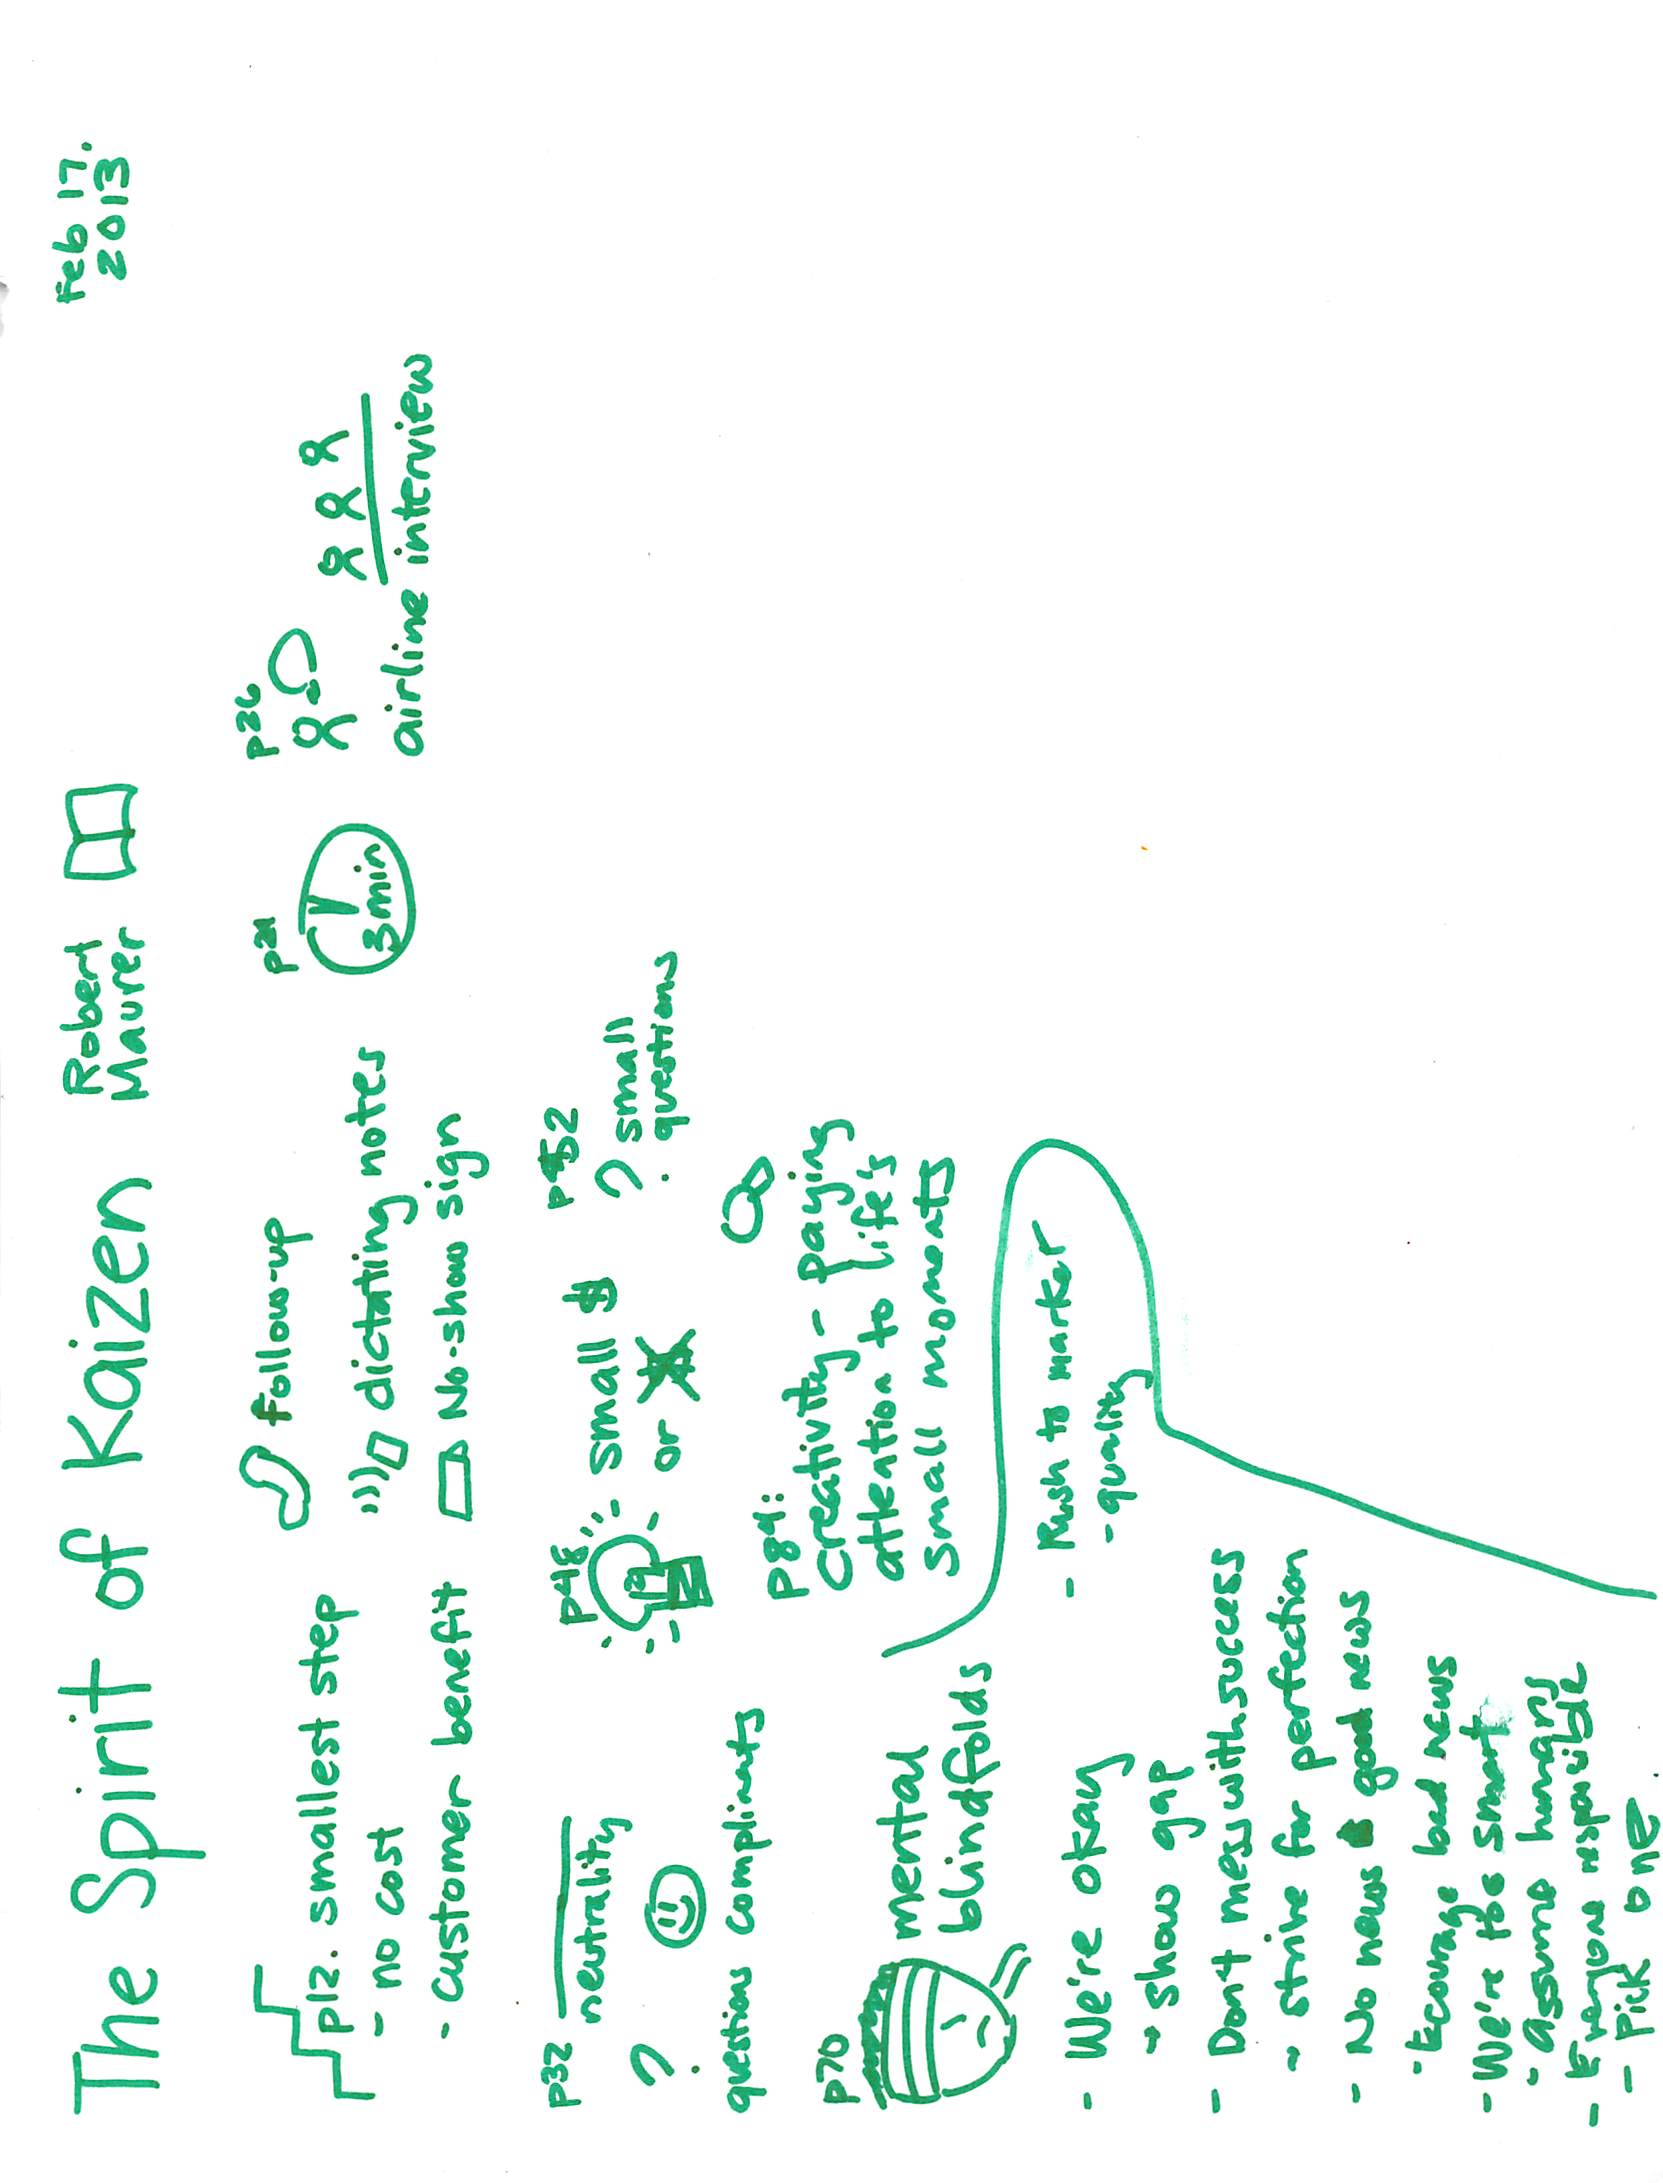 The Spirit of Kaizen
Robert
Maurer
Feb 17.
2013
p12. smallest step
- no cost
- customer benefit
follow-up
dictating notes
No-show sign
p21
3 min
p26
airline interview
p32
neutrality
?
questions compliments
p48
small $
or $
p52
? small
questions
p84:
creativity - paying
attention to life's
small moments
p70
mental
blindfolds
- We're okay
- show gap
- Don't mess with success
- strive for perfection
- No news good news
- Ecourage bad news
- We're too smart
- Assume humans
- Everyone responsible
- Pick one.
- Rush to market
- quality